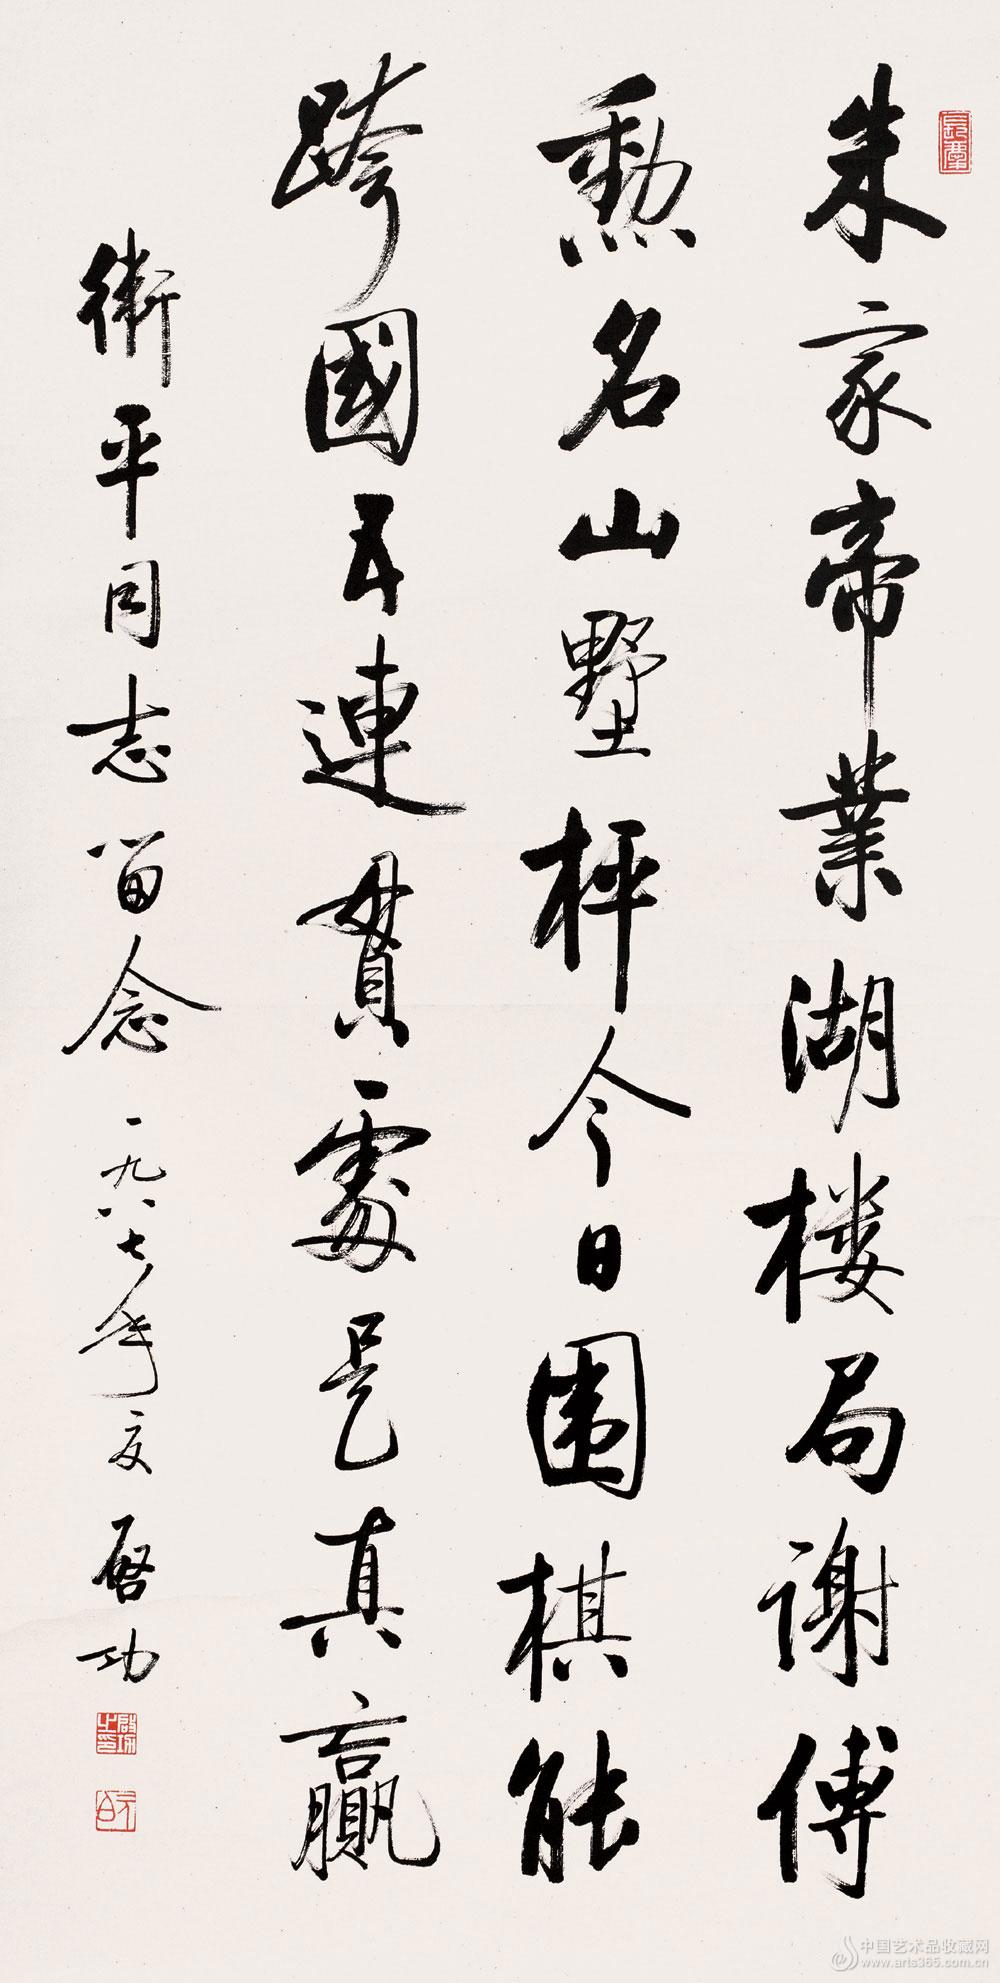 朱家帝業湖楼局謝傅
勲名山墅枰今日围棋能
跨國五連貫處是真贏
衛平同志留念一九八七年夏启功
中国艺术品收藏网
www.arts365.com.cn